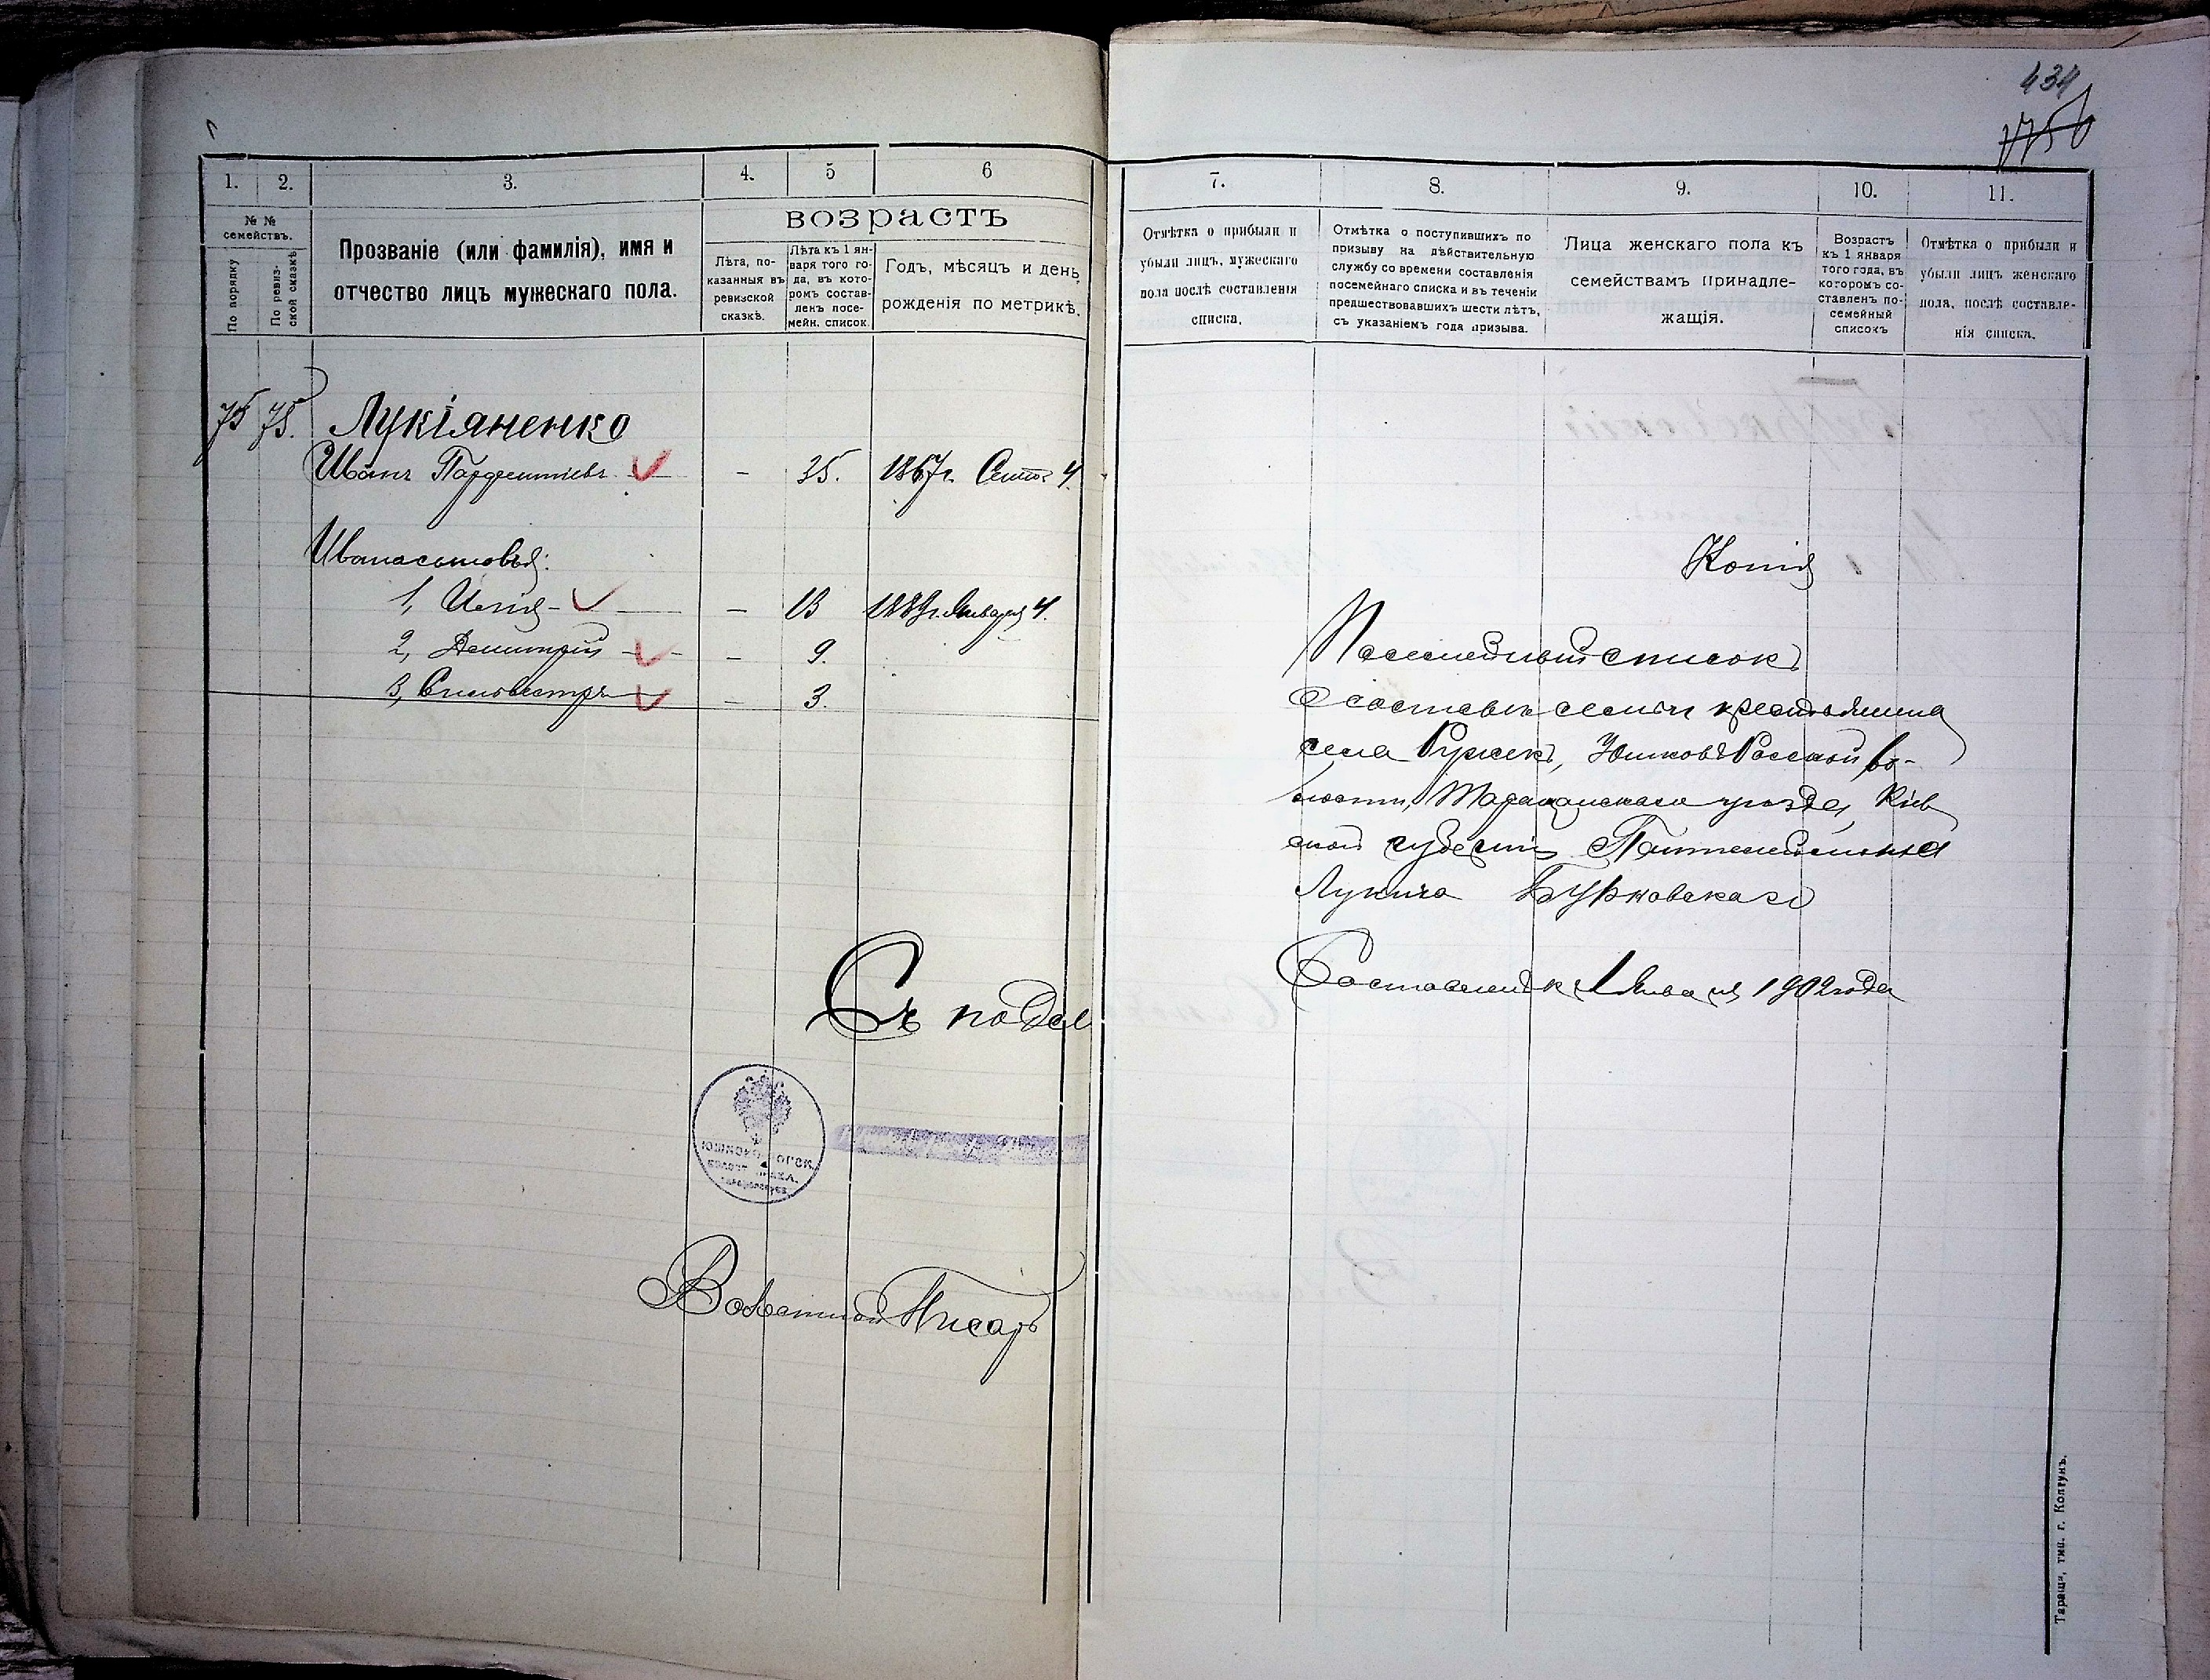 1.
2.
3.
4.
5
6
№ № семействъ.
По порядку
По ревиз-
ской сказкѣ
Прозваніе (или фамилія), имя и
отчество лицъ мужескаго пола.
возрастъ
Лѣта, по-
казанныя въ
ревизской
сказкѣ.
Лѣта къ 1 ян-
варя того го-
да, въ кото-
ромъ состав-
ленъ посе-
мейн. список.
Годъ, мѣсяцъ и день
рожденія по метрикѣ.
75 75. Лукіяненко
Иванъ Парфентіевъ — 35. 1867 г. Сент. 4.
Ивана сыновья:
1, Илія — 13 1889 г. Января 4.
2, Димитрій — 9.
3, Сильвестръ — 3.
Съ подл
Волостной Писарь
434
7.
8.
9.
10.
11.
Отмѣтка о прибыли и
убыли лицъ, мужескаго
пола послѣ составленія
списка.
Отмѣтка о поступившихъ по
призыву на дѣйствительную
службу со времени составленія
посемейнаго списка и въ теченіи
предшествовавшихъ шести лѣтъ,
съ указаніемъ года призыва.
Лица женскаго пола къ
семействамъ принадле-
жащія.
Возрастъ
къ 1 января
того года, въ
которомъ со-
ставленъ по-
семейный
списокъ
Отмѣтка о прибыли и
убыли лицъ женскаго
пола, послѣ составле-
нія списка.
Копія
Посемейный списокъ
О составѣ семьи крестьянина
села Ружекъ, Юшков Рогской во-
лости, Таращанскаго уѣзда, Кіев
ской губерніи Пантелеймона
Лукича Бурковскаго
Составленъ къ 1 Января 1902 года
Тараща, тип. г. Колтунъ.